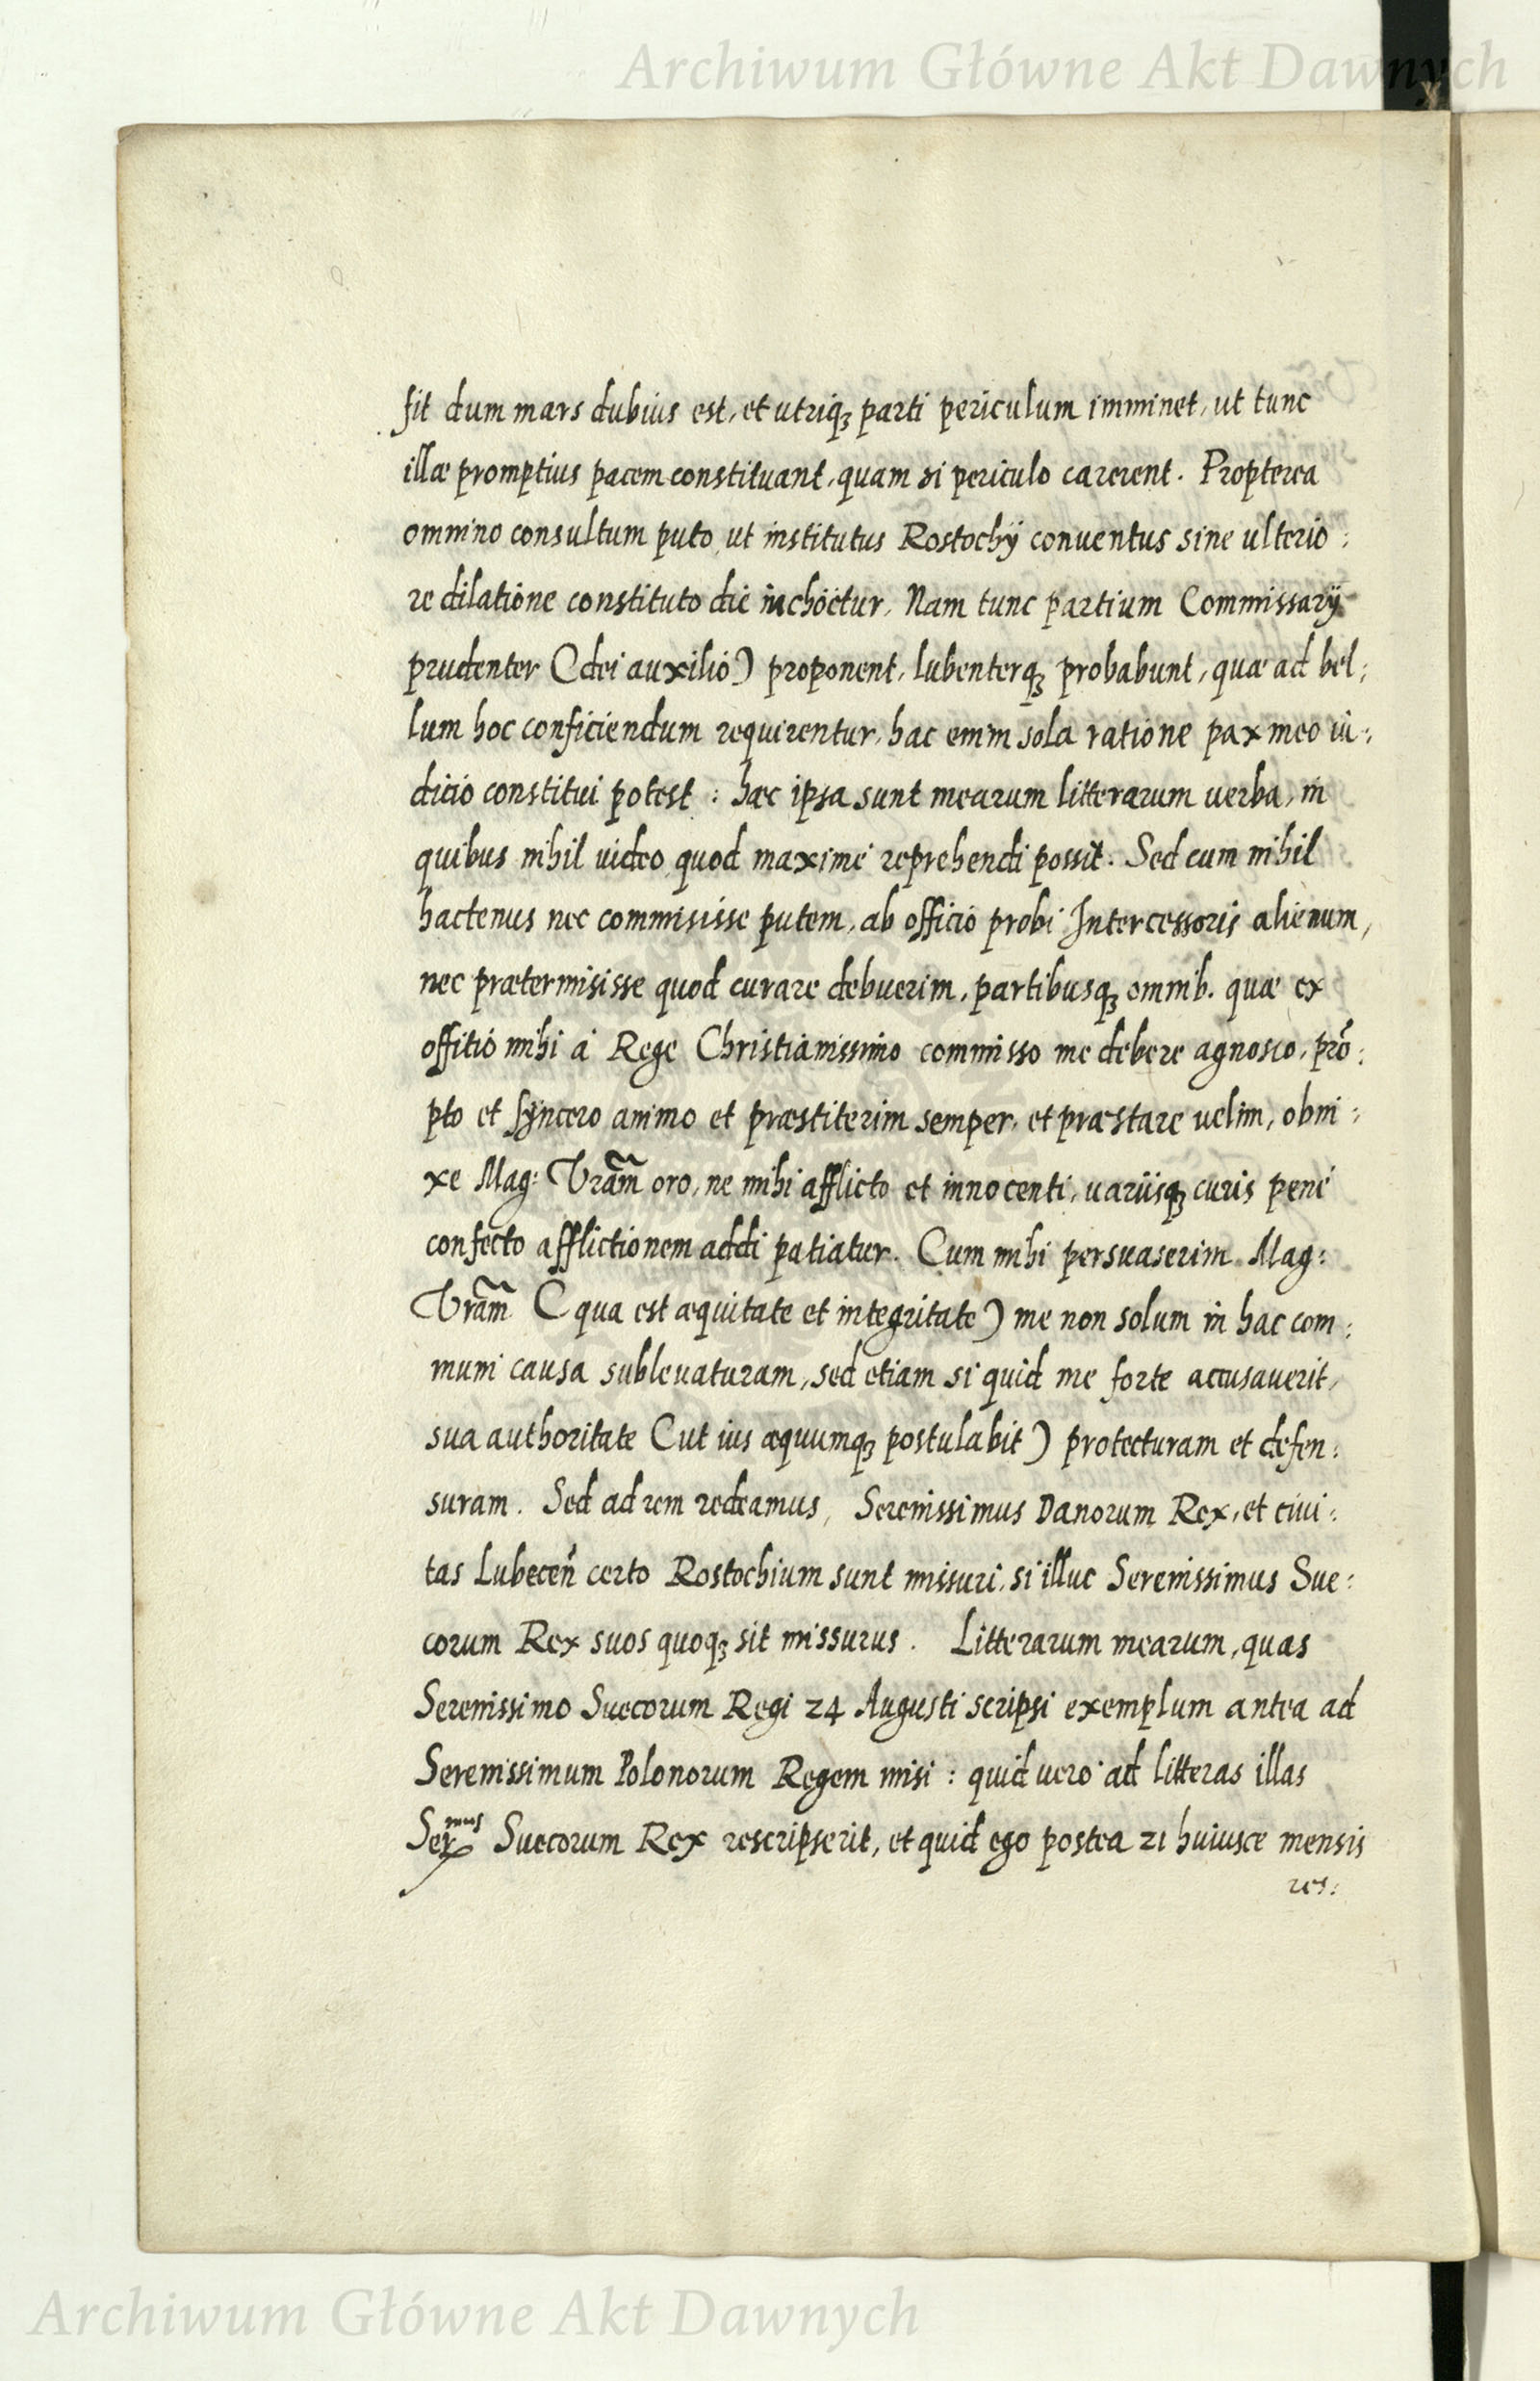 Archiwum Główne Akt Dawnych
fit dum mars dubius est, et utriq₃ parti periculum imminet, ut tunc
illæ promptius pacem constituant, quam si periculo carerent. Propterea
omnino consultum puto, ut institutus Rostochÿ conuentus sine ulterio:
re dilatione constituto die inchöetur, Nam tunc partium Commissarÿ
prudenter (dei auxilio) proponent, lubenterq₃ probabunt, quæ ad bel:
lum hoc conficiendum requirentur, hac enim sola ratione pax meo iu:
dicio constitui potest : hæc ipsa sunt mearum litterarum uerba, in
quibus nihil uideo quod maximè reprehendi possit. Sed cum nihil
hactenus nec commisisse putem, ab officio probi Intercessoris alienum,
nec prætermisisse quod curare debuerim, partibusq₃ omnib. quæ ex
offitio mihi à Rege Christianissimo commisso me debere agnosco, prõ:
pto et syncero animo et præstiterim semper, et præstare uelim, obni:
xe Mag: Vrãm oro, ne mihi afflicto et innocenti, uariisq₃ curis penè
confecto afflictionem addi patiatur. Cum mihi persuaserim Mag:
Vrãm (qua est æquitate et integritate) me non solum in hac com:
muni causa subleuaturam, sed etiam si quid me forte accusauerit,
sua authoritate (ut ius æquumq₃ postulabit) protecturam et defen:
suram. Sed ad rem redeamus, Serenissimus Danorum Rex, et ciui:
tas Lubeceñ certo Rostochium sunt missuri, si illuc Serenissimus Sue:
corum Rex suos quoq₃ sit missurus. Litterarum mearum, quas
Serenissimo Suecorum Regi 24 Augusti scripsi exemplum antea ad
Serenissimum Polonorum Regem misi : quid uero ad litteras illas
Serᵐᵘˢ Suecorum Rex rescripserit, et quid ego postea 21 huiusce mensis
res:
Archiwum Główne Akt Dawnych